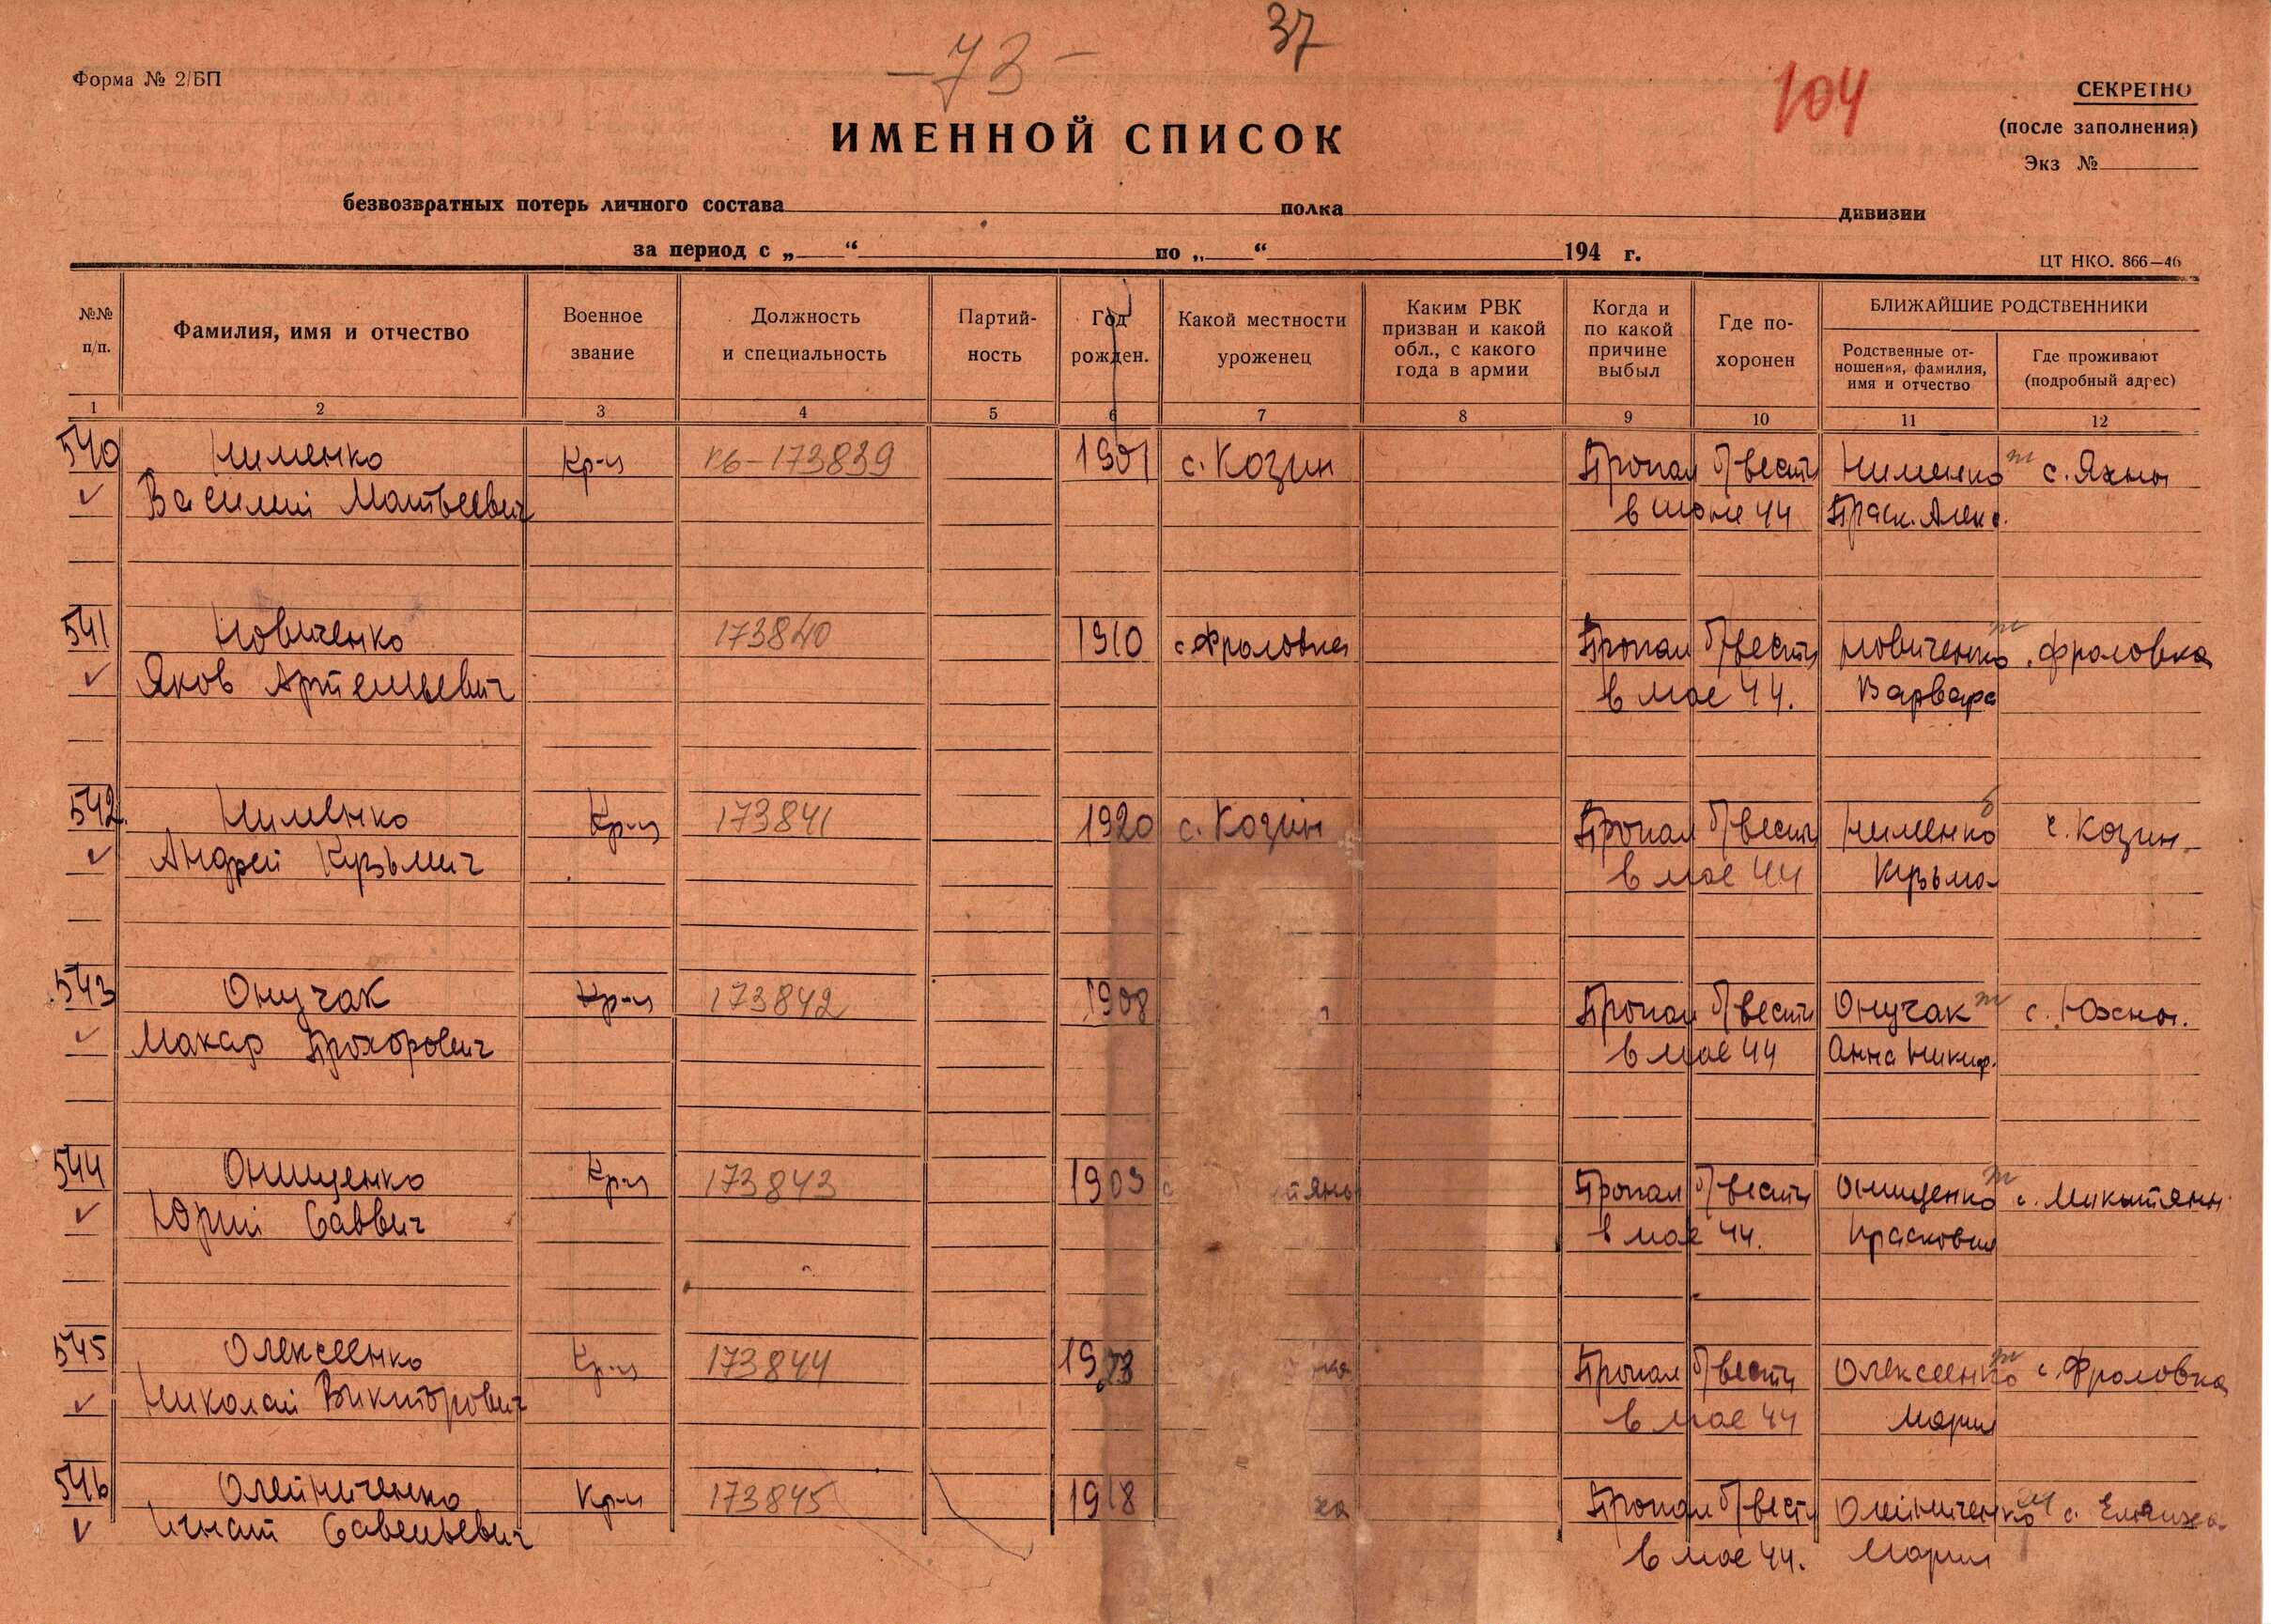 37
-73-
104
Форма № 2/БП
СЕКРЕТНО
(после заполнения)
Экз №
ИМЕННОЙ СПИСОК
безвозвратных потерь личного состава полка дивизии
за период с „ “ по „ “ 194 г.
ЦТ НКО. 866—46
№№ п/п. Фамилия, имя и отчество Военное звание Должность и специальность Партий-ность Год рожден. Какой местности уроженец Каким РВК призван и какой обл., с какого года в армии Когда и по какой причине выбыл Где по-хоронен БЛИЖАЙШИЕ РОДСТВЕННИКИ Родственные от-ношения, фамилия, имя и отчество Где проживают (подробный адрес)
1 2 3 4 5 6 7 8 9 10 11 12
540 Нименко Кр-ц 173839 1901 с. Козин Пропал б/вести Нименко ж с. Яхны
Василий Матвеевич в июне 44 Праск. Алекс.
541 Новиченко 173840 1910 с. Фроловка Пропал б/вести Новиченко ж Фроловка
Яков Артемьевич в мае 44. Варвара
542. Нименко Кр-ц 173841 1920 с. Козин Пропал б/вести Нименко с. Козин
Андрей Кузьмич в мае 44 Кузьма
543 Онучак Кр-ц 173842 1908 Пропал б/вести Онучак ж с.
Макар Прохорович в мае 44 Анна Никиф.
544 Онищенко Кр-ц 173843 1903 с тяны Пропал б/вести Онищенко ж с. Микитяны
Юрий Саввич в мае 44. Прасковия
545 Олексеенко Кр-ц 173844 ка Пропал б/вести Олексеенко ж с. Фроловка
Николай Викторович в мае 44 Мария
546 Олейниченко Кр-ц 173845 1918 ха Пропал б/вести Олейниченко с.
Игнат Савельевич в мае 44. Мария